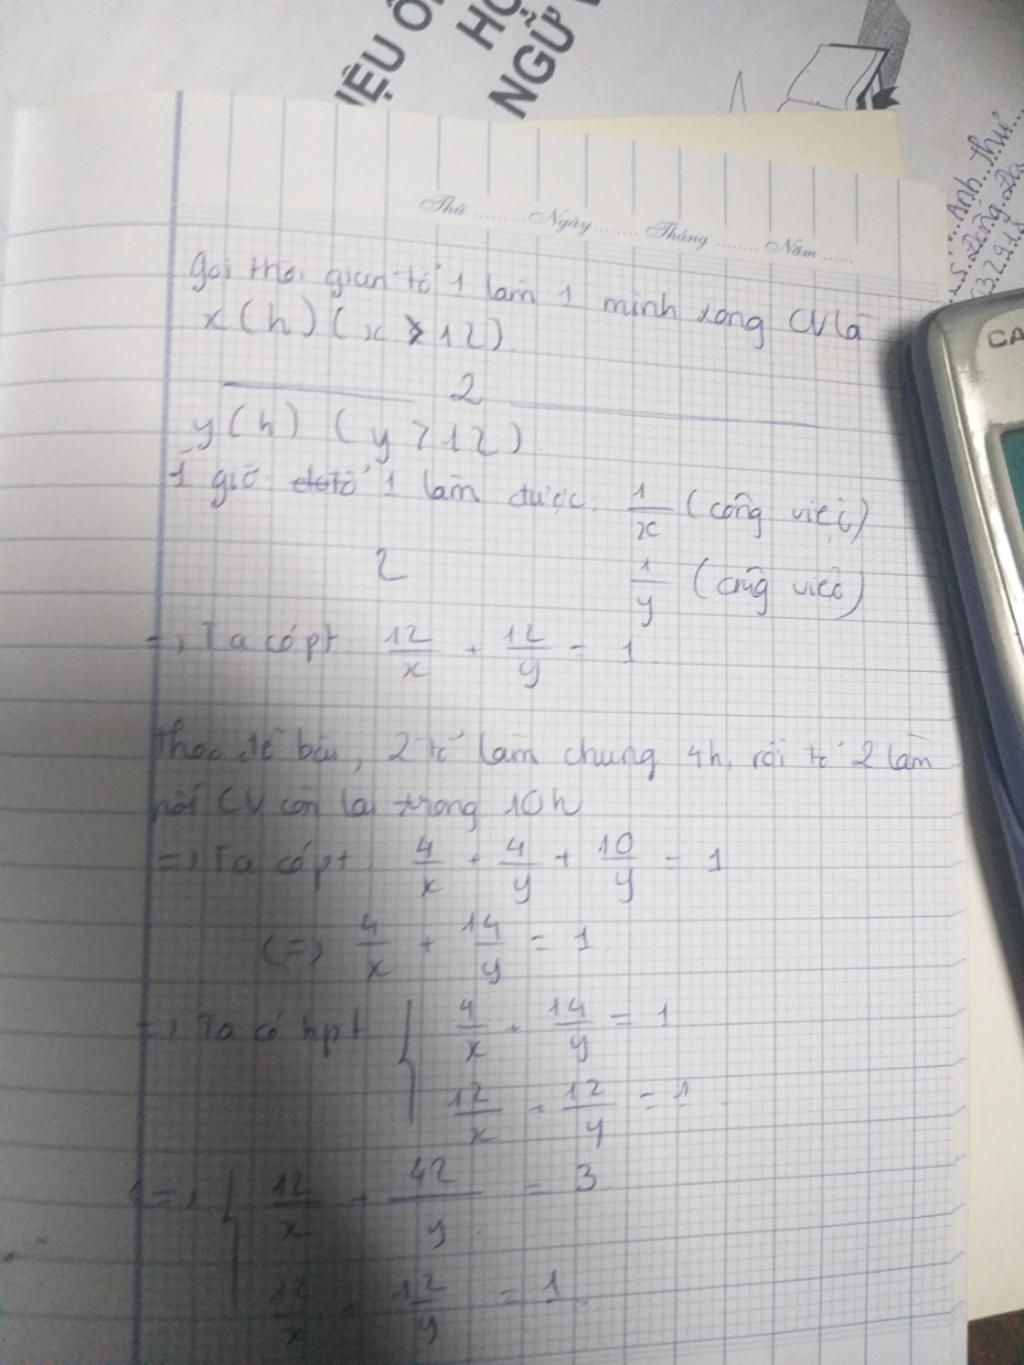 IỆU Ô
HO
NGỮ V
Thứ .......... Ngày ........ Tháng ........ Năm ......
Anh Thư...
CA
gọi thời gian tổ 1 làm 1 mình xong CV là
x (h) (x > 12)
2
y (h) (y > 12)
1 giờ tổ 1 làm được 1/x (công việc)
2 1/y (công việc)
=) Ta có pt 12/x + 12/y = 1
theo đề bài, 2 tổ làm chung 4h, rồi tổ 2 làm
nốt CV còn lại trong 10h
=) Ta có pt 4/x + 4/y + 10/y = 1
(=) 4/x + 14/y = 1
=) Ta có hpt { 4/x + 14/y = 1
12/x + 12/y = 1
(=) { 12/x + 42/y = 3
12/x + 12/y = 1